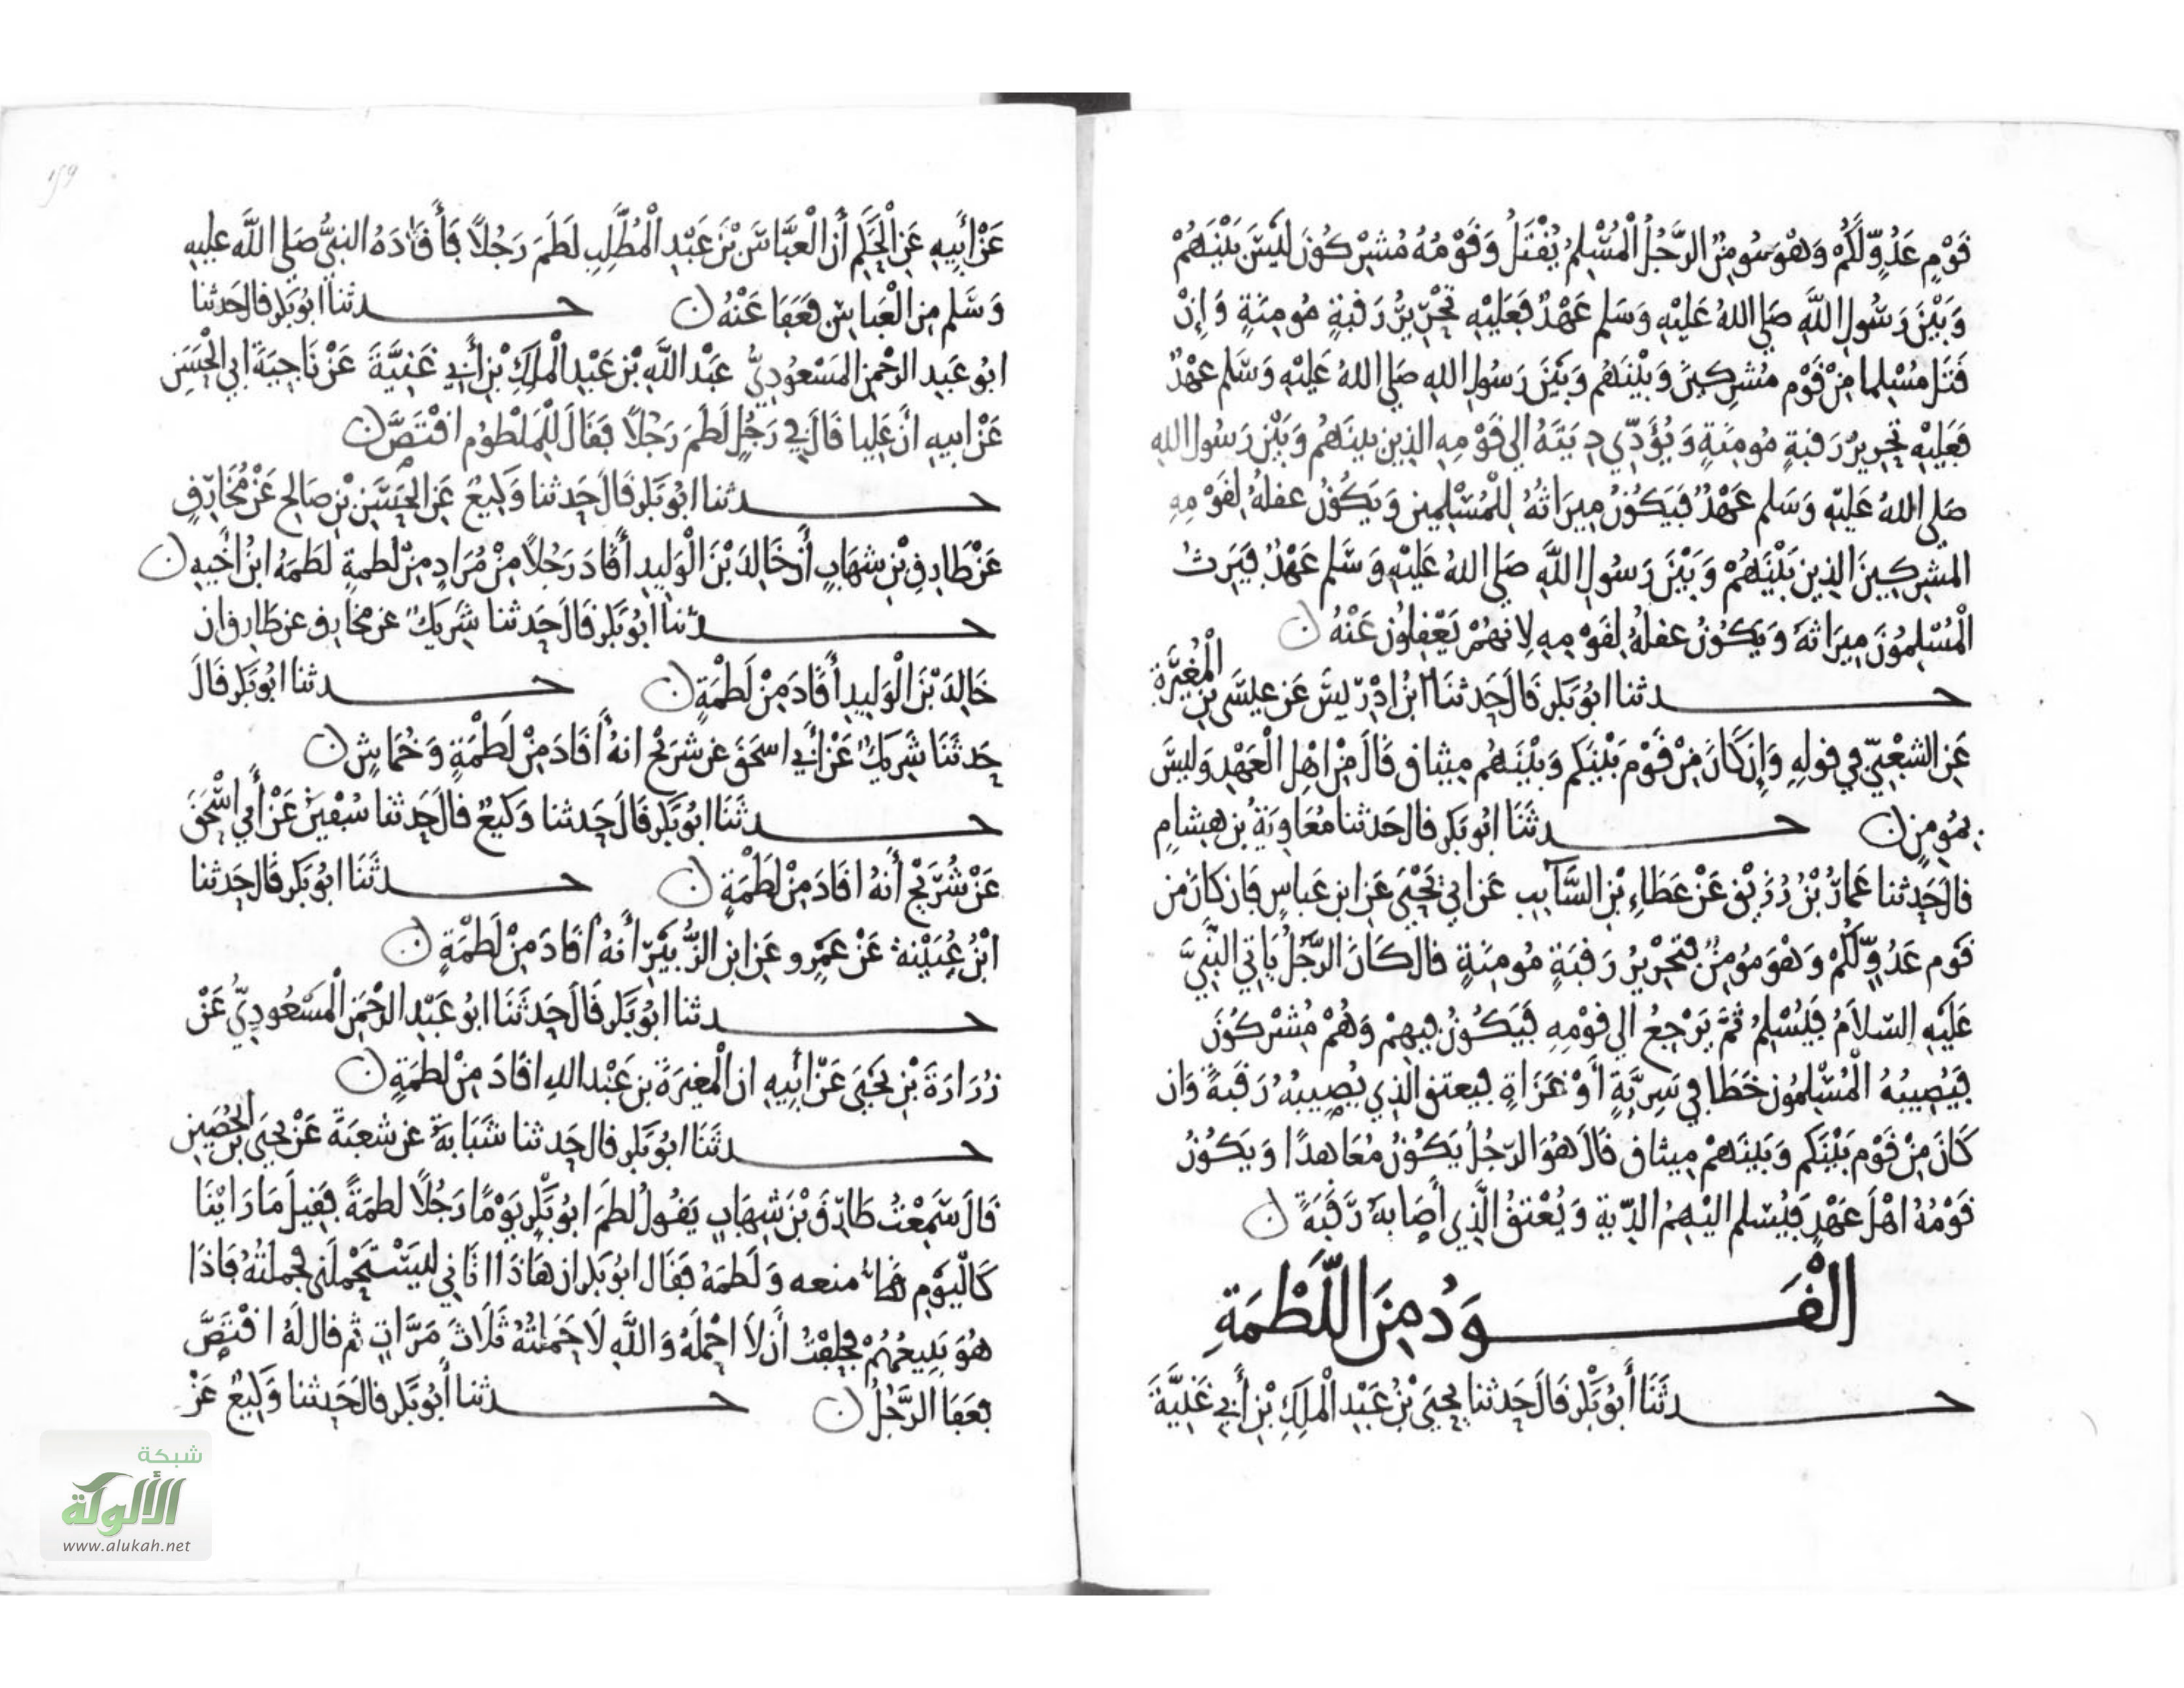 قَوْمٍ عَدُوٍّ لَّكُمْ وَهْوَ مُومِنٌ الرَّجُلُ الْمُسْلِمُ يُقْتَلُ وَقَوْمُهُ مُشْرِكُونَ لَيْسَ بَيْنَهُمْ
وَبَيْنَ رَسُولِ اللَّهِ صَلى اللهُ عَلَيْهِ وَسَلم عَهْدٌ فَعَلَيْهِ تَحْرِيرُ رَقَبَةٍ مُومِنَةٍ وَإِنْ
قَتَلَ مُسْلِما مِنْ قَوْمٍ مُشْرِكِينَ وَبَيْنَهُم وَبَيْنَ رَسُولِ اللهِ صَلى اللهُ عَلَيْهِ وَسَلم عَهْدٌ
فَعَلَيْهِ تحرِيرُ رَقبةٍ مُومِنَةٍ وَيُؤَدِّي دِيَتَهُ الى قَوْمِهِ الذين بينَهُم وَبَيْنَ رَسُول اللهِ
صَلى اللهُ عَلَيْهِ وَسَلم عَهْدٌ فَيَكُونُ مِيرَاثُهُ لِلْمُسْلِمِين وَيَكُونُ عقلهُ لِقَوْمِهِ
المشرِكِينَ الذِين بَيْنَهُمْ وَبَيْنَ رَسُولِ اللَّهِ صَلى اللهُ عَلَيْهِ وَسَلم عَهْدٌ فَيَرِثُ
الْمُسْلِمُونَ مِيرَاثَهُ وَيَكُونُ عقلهُ لِقَوْمِهِ لِانهُمْ يَعْقِلُون عَنْهُ ن
حـــدثنا ابُو بَكر قَالَ حَدثنَا ابنُ ادْرِيسَ عَن عيسَى بن الْمُغِيَرَةِ
عَنِ الشعْبِيّ في قولهِ وَإِن كَانَ مِنْ قَوْمٍ بَيْنَكم وَبَيْنَهُم مِيثاق قَالَ مِنْ اهْلِ الْعَهْدِ وَلَيسَ
بِمُومِنٍ ن حـــدثَنَا ابُو بَكر قال حَدثنا مُعَاوِيَةُ بن هِشَامٍ
قالَ حَدثنا عَمارُ بْنُ رُزَيْقٍ عَنْ عَطَاءِ بْنِ السَّايبِ عَن ابي يَحْيَى عَنِ ابن عَباسٍ فَان كَانَ من
قَوم عَدُوٍّ لَّكُمْ وَهْوَ مُومِنٌ فتَحْرِيرُ رَقَبَةٍ مُومِنَةٍ قال كَانَ الرَّجُلُ يَاتِي النَّبِيَّ
عَلَيْهِ السّلامُ فَيُسْلِمُ ثُمَّ يَرْجِعُ الى قوْمِهِ فَيَكُونُ فِيهِمْ وَهُمْ مُشْرِكُونَ
فَيُصِيبُهُ الْمُسْلِمُون خَطَا في سَرِيَّةٍ أَوْ غَزَاةٍ فيعتق الذِي يُصِيبُهُ رَقَبَةً وَان
كَانَ مِنْ قَوْم بَيْنَكم وَبَينَهمْ مِيثاق قَالَ هُوَ الرّجُلُ يَكُونُ مُعَاهدًا وَيَكُونُ
قَوْمُهُ اهْلَ عَهْدٍ فَيُسَلم اليْهِمُ الدّيَة وَيُعْتِقُ الَّذِي أَصَابَهُ رَّقَبَةً ن
الْقَـــوَدُ مِنَ اللَّطْمَةِ
حـــدثَنَا أَبُو بَكْر قَالَ حَدثنا يحيَى بْنُ عَبْدِ الْمَلِكِ بْنِ أَبِي غَنِيَّةَ
عَنْ أَبِيهِ عَنِ الْحَكَمِ أَنَّ الْعَبَّاسَ بْنَ عَبْدِ الْمُطَّلِبِ لَطَمَ رَجُلاً فَأَقَادَهُ النبيُّ صَلى اللَّه عليهِ
وَسَلم مِن الْعَبَاسِ فَعَفَا عَنْهُ ن حـــدثنا ابُو بَكر قال حَدثنا
ابُو عَبيدِ الرحْمنِ المَسْعُودِيُّ عَبْد اللَّهِ بْن عَبْدِ الْمَلِكِ بْنِ أَبِي غَنِيَّةَ عَنْ نَاجِيَةَ ابي الْحَسَنِ
عَنْ ابيهِ انَّ عَلِيا قَالَ فِي رَجُلٍ لَطَمَ رَجُلاً فَقَالَ لِلْمَلْطُومِ اقْتَصَّ ن
حـــدثنا ابُو بَكر قَالَ حَدثنا وَكِيعٌ عَنِ الْحَسَنِ بْنِ صَالحٍ عَنْ مُخَارِقٍ
عَنْ طَارِقِ بْنِ شهَابٍ أَنَّ خَالِدَ بْنَ الْوَلِيدِ أَقَادَ رَجُلاً مِنْ مُرَادٍ مِنْ لَطمَةٍ لَطَمَهُ ابنُ أَخِيهِ ن
حـــدثنا ابُو بَكر قَالَ حَدثنا شَرِيكٌ عن مخَارِق عن طَارِق ان
خَالِدَ بْنَ الْوَلِيدِ أَقَادَ مِنْ لَطْمَةٍ ن حـــدثنا ابُو بَكر قَالَ
حَدثَنَا شَرِيكٌ عَنْ أَبي اسحَقَ عن شرَيح انهُ أَقَادَ مِنْ لَطْمَةٍ وَخُمَاشٍ ن
حـــدثَنَا ابُو بَكر قَالَ حَدثنا وَكِيعٌ قالَ حَدثنا سُفْيَنُ عَنْ أَبِي اسْحَقَ
عَنْ شُرَيْحٍ أَنهُ اقَادَ مِنْ لَطْمَةٍ ن حـــدثَنَا ابُو بَكر قَال حَدثنا
ابْنُ عُيَيْنة عَنْ عَمْرٍو عَن ابن الزُّبَيْرِ أَنهُ أَقَادَ مِنْ لَطْمَةٍ ن
حـــدثنا ابُو بَكر قَالَ حَدثَنَا ابُو عَبْدِ الرحْمَنِ الْمَسْعُودِيُّ عَنْ
زُرَارَةَ بْنِ يَحْيَى عَنْ أَبِيهِ ان الْمغِيرَةَ بن عَبْد اللهِ اقَادَ مِنْ لطمَةٍ ن
حـــدثَنَا ابُو بَكر قال حَدثنا شَبَابَةُ عن شعبَةَ عَنْ يحيَى بن الحُصَيْنِ
قَالَ سَمِعْتُ طَارِقَ بْنَ شِهَابٍ يَقُولُ لَطَمَ ابُو بَكْرٍ يَوْمًا رَجُلًا لطمَةً فَقِيلَ مَا رَايْنَا
كَالْيَوْمِ منعه وَلَطَمَهُ فَقَالَ ابُو بَكر ان هَاذَا اتَانِي لِيَسْتَحْمِلَنِي فحملتُهُ فَاذَا
هُوَ يَبِيعُهُمْ فَحَلَفْتُ أَن لاَ احْمِلَهُ وَاللَّهِ لَا حَمَلتُهُ ثَلَاثَ مَرَّاتٍ ثم قال لَهُ اقْتَصَّ
فعَفَا الرَّجُلُ ن حـــدثنا أَبُو بَكر قال حَدثنا وَكِيعٌ عَنْ
شبكة
الألوكة
www.alukah.net